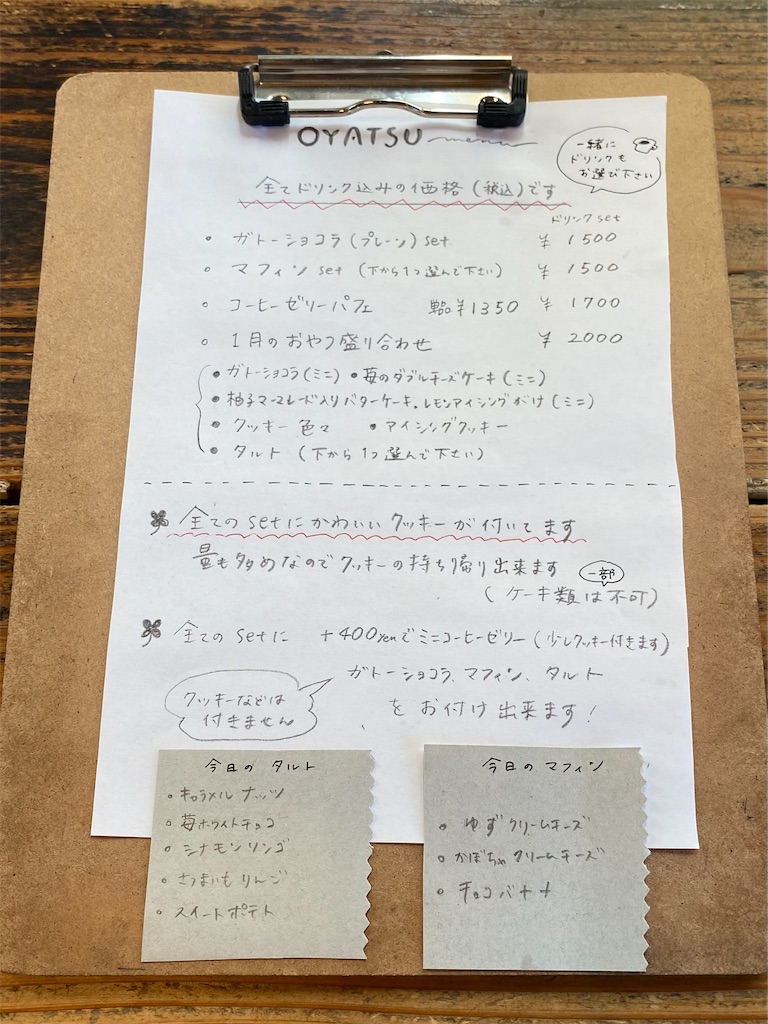 OYATSU menu
一緒に
ドリンクも
お選び下さい
全てドリンク込みの価格(税込)です
ドリンクset
ガトーショコラ(プレーン)set ¥1500
マフィンset(下から1つ選んで下さい) ¥1500
コーヒーゼリーパフェ 単品¥1350 ¥1700
1月のおやつ盛り合わせ ¥2000
ガトーショコラ(ミニ) 苺のダブルチーズケーキ(ミニ)
柚子マーマレード入りバターケーキ。レモンアイシングがけ(ミニ)
クッキー色々 アイシングクッキー
タルト(下から1つ選んで下さい)
全てのsetにかわいいクッキーが付いてます
量も多めなのでクッキーの持ち帰り出来ます
一部
(ケーキ類は不可)
全てのsetに +400yenでミニコーヒーゼリー(少しクッキー付きます)
ガトーショコラ、マフィン、タルト
クッキーなどは
付きません
をお付け出来ます!
今日のタルト
キャラメルナッツ
苺ホワイトチョコ
シナモンリンゴ
さつまいもりんご
スイートポテト
今日のマフィン
ゆずクリームチーズ
かぼちゃクリームチーズ
チョコバナナ